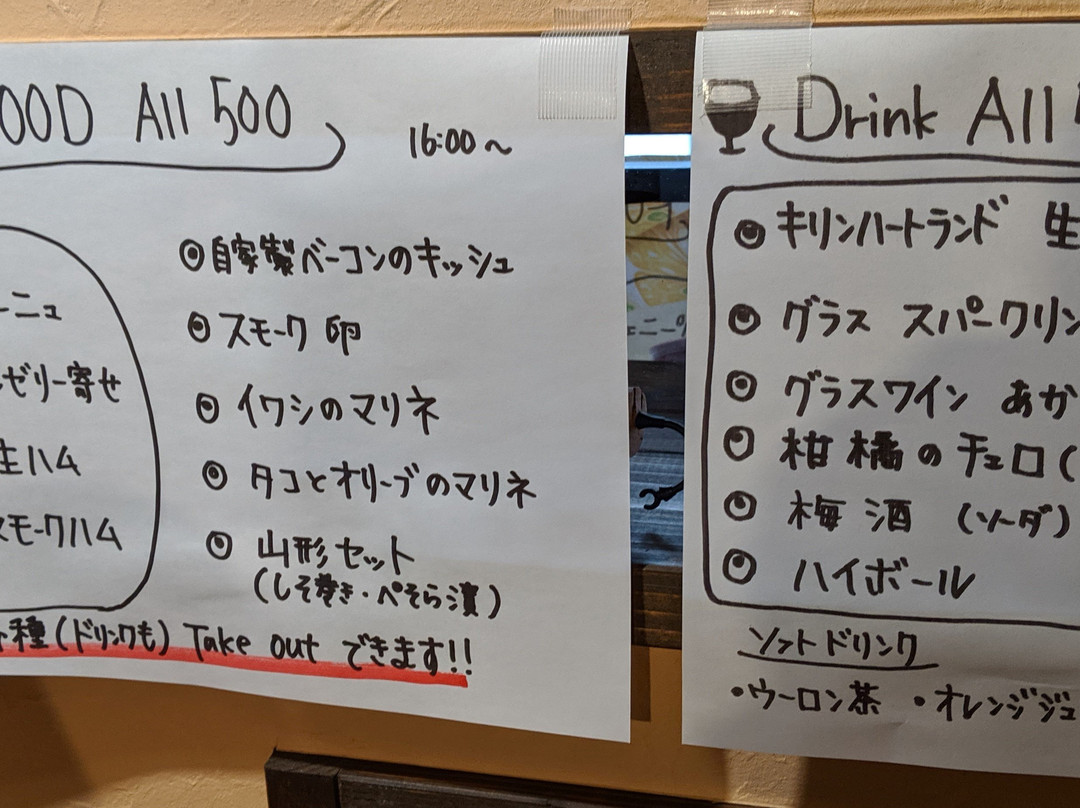 OOD All 500
16:00～
ーニュ
ゼリー寄せ
生ハム
スモークハム
◎自家製ベーコンのキッシュ
◎スモーク卵
◎イワシのマリネ
◎タコとオリーブのマリネ
◎山形セット
(しそ巻き・ぺそら漬)
種(ドリンクも) Take out できます!!
Drink All 5
◎キリンハートランド 生
◎グラス スパークリン
◎グラスワイン あか
◎柑橘のチェロ(
◎梅酒 (ソーダ)
◎ハイボール
ソフトドリンク
・ウーロン茶 ・オレンジジュ